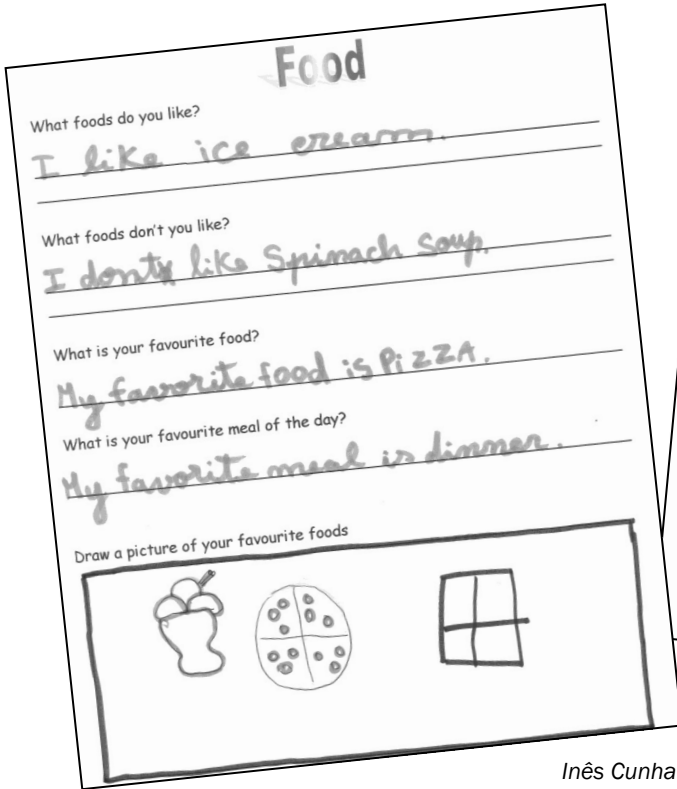 Food
What foods do you like?
I like ice cream.
What foods don't you like?
I dont like Spinach Soup.
What is your favourite food?
My favorite food is PizzA.
What is your favourite meal of the day?
My favorite meal is dinner.
Draw a picture of your favourite foods
Inês Cunha